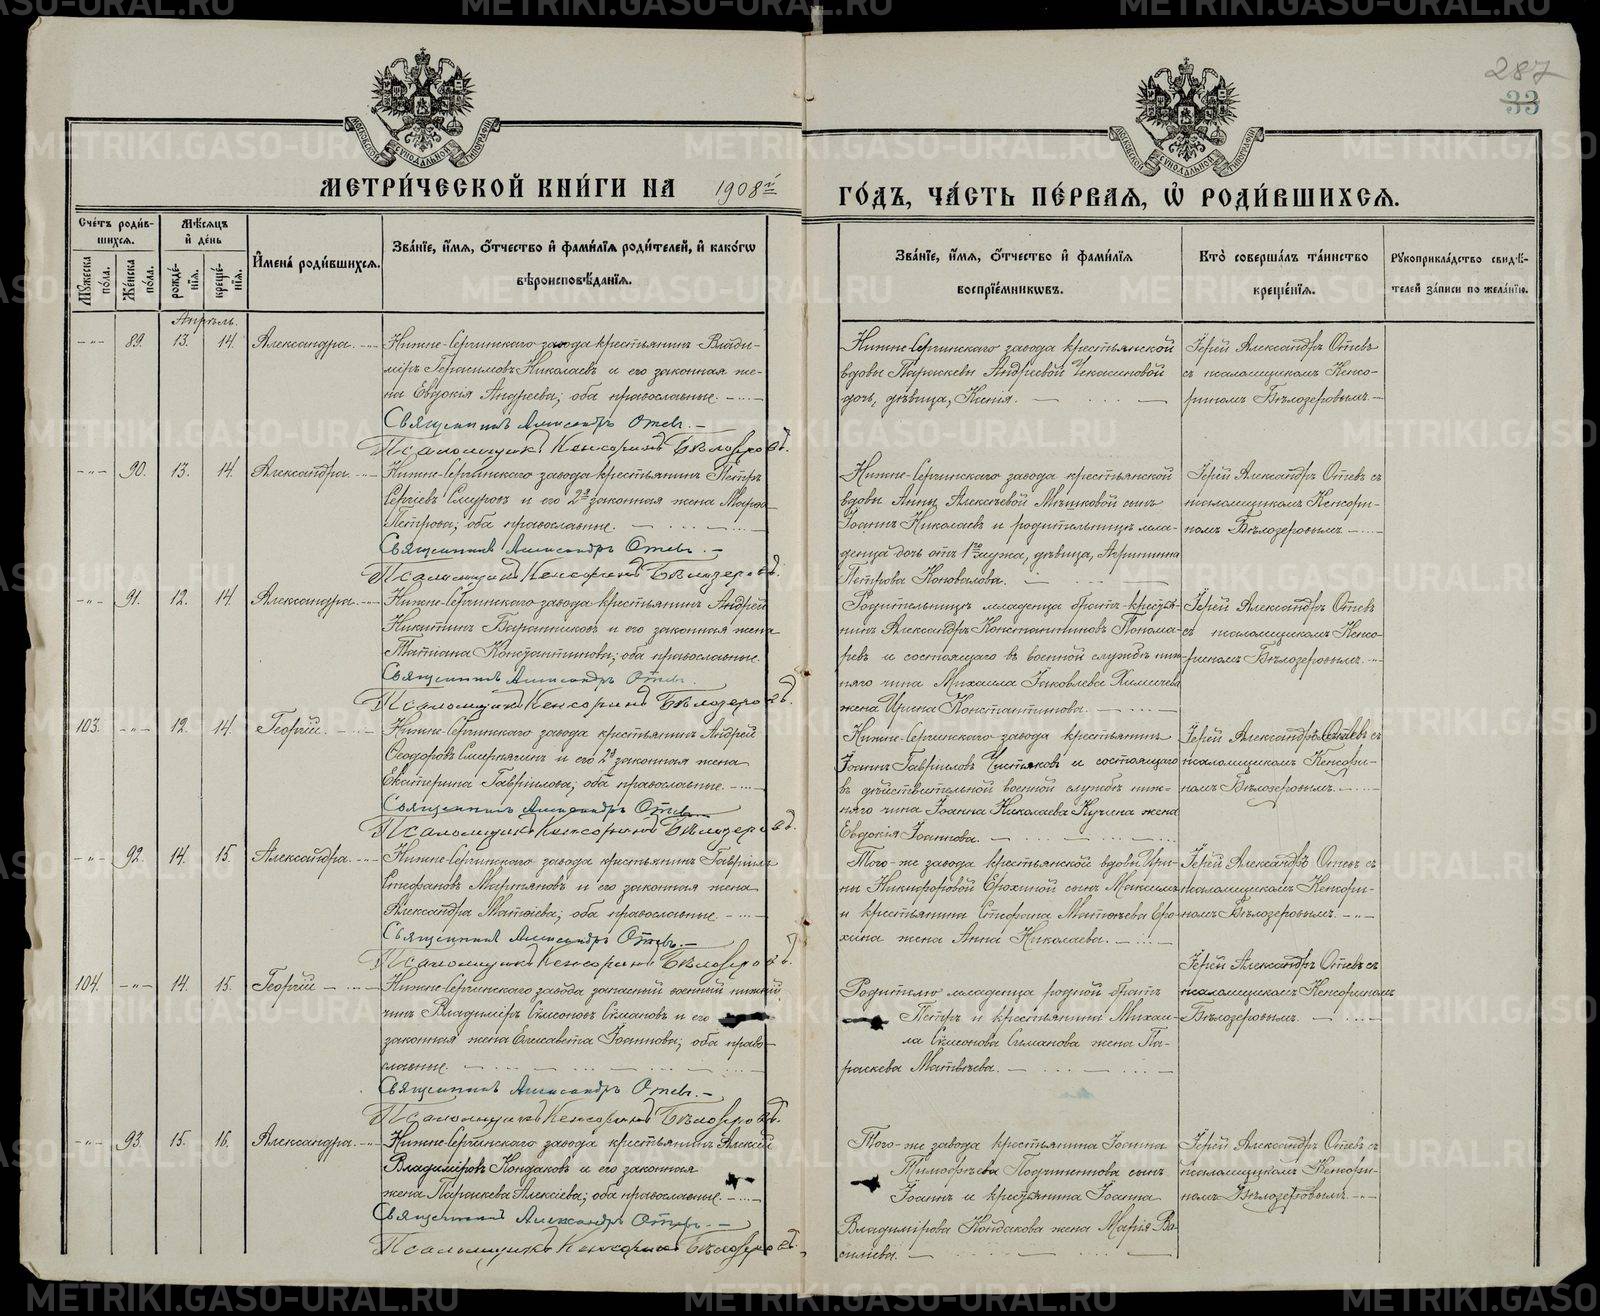 287
33
МОСКОВСКОЙ СѴНОДАЛЬНОЙ ТИПОГРАФІИ
МОСКОВСКОЙ СѴНОДАЛЬНОЙ ТИПОГРАФІИ
МЕТРИ́ЧЕСКОЙ КНИ́ГИ НА 1908й ГО́ДЪ, ЧА́СТЬ ПЕ́РВАЯ, Ѡ҆ РОДИ́ВШИХСЯ.
Сче́тъ роди́вшихся.
Мꙋ́жеска по́ла.
Же́нска по́ла.
Мѣ́сяцъ и҆ де́нь
рожде́нія.
креще́нія.
И҆мена̀ роди́вшихся.
Зва́ніе, и҆́мя, ѻ҆́тчество и҆ фами́лія роди́телей, и҆ како́гѡ
вѣроисповѣ́данія.
Зва́ніе, и҆́мя, ѻ҆́тчество и҆ фами́лія
воспріе́мникѡвъ.
Кто̀ соверша́лъ та́инство
креще́нія.
Рꙋкоприкла́дство свидѣ́-
телей за́писи по жела́нію.
Апрѣль.
-"- 89. 13. 14. Александра.
Нижне-Сергинскаго завода крестьянинъ Влади-
міръ Герасимовъ Николаевъ и его законная же-
на Евдокія Андреева; оба православные.
Священникъ Александръ Отевъ.
Псаломщикъ Кенсоринъ Бѣлозеровъ.
Нижне-Сергинскаго завода крестьянской
вдовы Параскевы Андреевой Чекасиновой
дочь, дѣвица, Ксенія.
Іерей Александръ Отевъ
съ псаломщикомъ Кенсо-
риномъ Бѣлозеровымъ.
-"- 90. 13. 14. Александра.
Нижне-Сергинскаго завода крестьянинъ Петръ
Сергіевъ Смуровъ и его 2я законная жена Марѳа
Петрова; оба православные.
Священникъ Александръ Отевъ.
Псаломщикъ Кенсоринъ Бѣлозеровъ.
Нижне-Сергинскаго завода крестьянской
вдовы Анны Алексѣевой Мѣшковой сынъ
Іоаннъ Николаевъ и родительницы мла-
денца дочь отъ 1го мужа, дѣвица, Агрипина
Петрова Коновалова.
Іерей Александръ Отевъ съ
псаломщикомъ Кенсори-
номъ Бѣлозеровымъ.
-"- 91. 12. 14. Александра.
Нижне-Сергинскаго завода крестьянинъ Андрей
Никитинъ Баранниковъ и его законная жена
Татіана Константинова; оба православные.
Священникъ Александръ Отевъ.
Псаломщикъ Кенсоринъ Бѣлозеровъ.
Родительницы младенца братъ крестья-
нинъ Александръ Константиновъ Понома-
ревъ и состоящаго въ военной службѣ ниж-
няго чина Михаила Іаковлева Химичева
жена Ирина Константинова.
Іерей Александръ Отевъ
съ псаломщикомъ Кенсо-
риномъ Бѣлозеровымъ.
103. -"- 12. 14. Георгій.
Нижне-Сергинскаго завода крестьянинъ Андрей
Ѳеодоровъ Смирнягинъ и его 2я законная жена
Екатерина Гавріилова; оба православные.
Священникъ Александръ Отевъ.
Псаломщикъ Кенсоринъ Бѣлозеровъ.
Нижне-Сергинскаго завода крестьянинъ
Іоаннъ Гавріиловъ Чистяковъ и состоящаго
въ дѣйствительной военной службѣ ниж-
няго чина Іоанна Николаева Кучина жена
Евдокія Іоаннова.
Іерей Александръ Отевъ съ
псаломщикомъ Кенсори-
номъ Бѣлозеровымъ.
-"- 92. 14. 15. Александра.
Нижне-Сергинскаго завода крестьянинъ Гавріилъ
Стефановъ Мартьяновъ и его законная жена
Александра Матѳіева; оба православные
Священникъ Александръ Отевъ.
Псаломщикъ Кенсоринъ Бѣлозеровъ.
Того-же завода крестьянской вдовы Ири-
ны Никифоровой Ерохиной сынъ Максимъ
и крестьянина Стефана Матвѣева Еро-
хина жена Анна Николаева.
Іерей Александръ Отевъ съ
псаломщикомъ Кенсори-
номъ Бѣлозеровымъ.
104. -"- 14. 15. Георгій
Нижне-Сергинскаго завода запасный военный нижній
чинъ Владиміръ Сѵмеоновъ Симановъ и его
законная жена Елисавета Іоаннова; оба право-
славные.
Священникъ Александръ Отевъ.
Псаломщикъ Кенсоринъ Бѣлозеровъ.
Родителю младенца родной братъ
Петръ и крестьянина Михаи-
ла Сѵмеонова Симанова жена Па-
раскева Матвѣева.
Іерей Александръ Отевъ съ
псаломщикомъ Кенсориномъ
Бѣлозеровымъ.
-"- 93. 15. 16. Александра.
Нижне-Сергинскаго завода крестьянинъ Алексій
Владиміровъ Кондаковъ и его законная
жена Параскева Алексіева; оба православные.
Священникъ Александръ Отевъ.
Псаломщикъ Кенсоринъ Бѣлозеровъ.
Того-же завода крестьянина Іоанна
Тимоѳеева сынъ
Іоаннъ и крестьянина Іоанна
Владимірова Кондакова жена Марія Ва-
сильева.
Іерей Александръ Отевъ съ
псаломщикомъ Кенсори-
номъ Бѣлозеровымъ.
METRIKI.GASO-URAL.RU